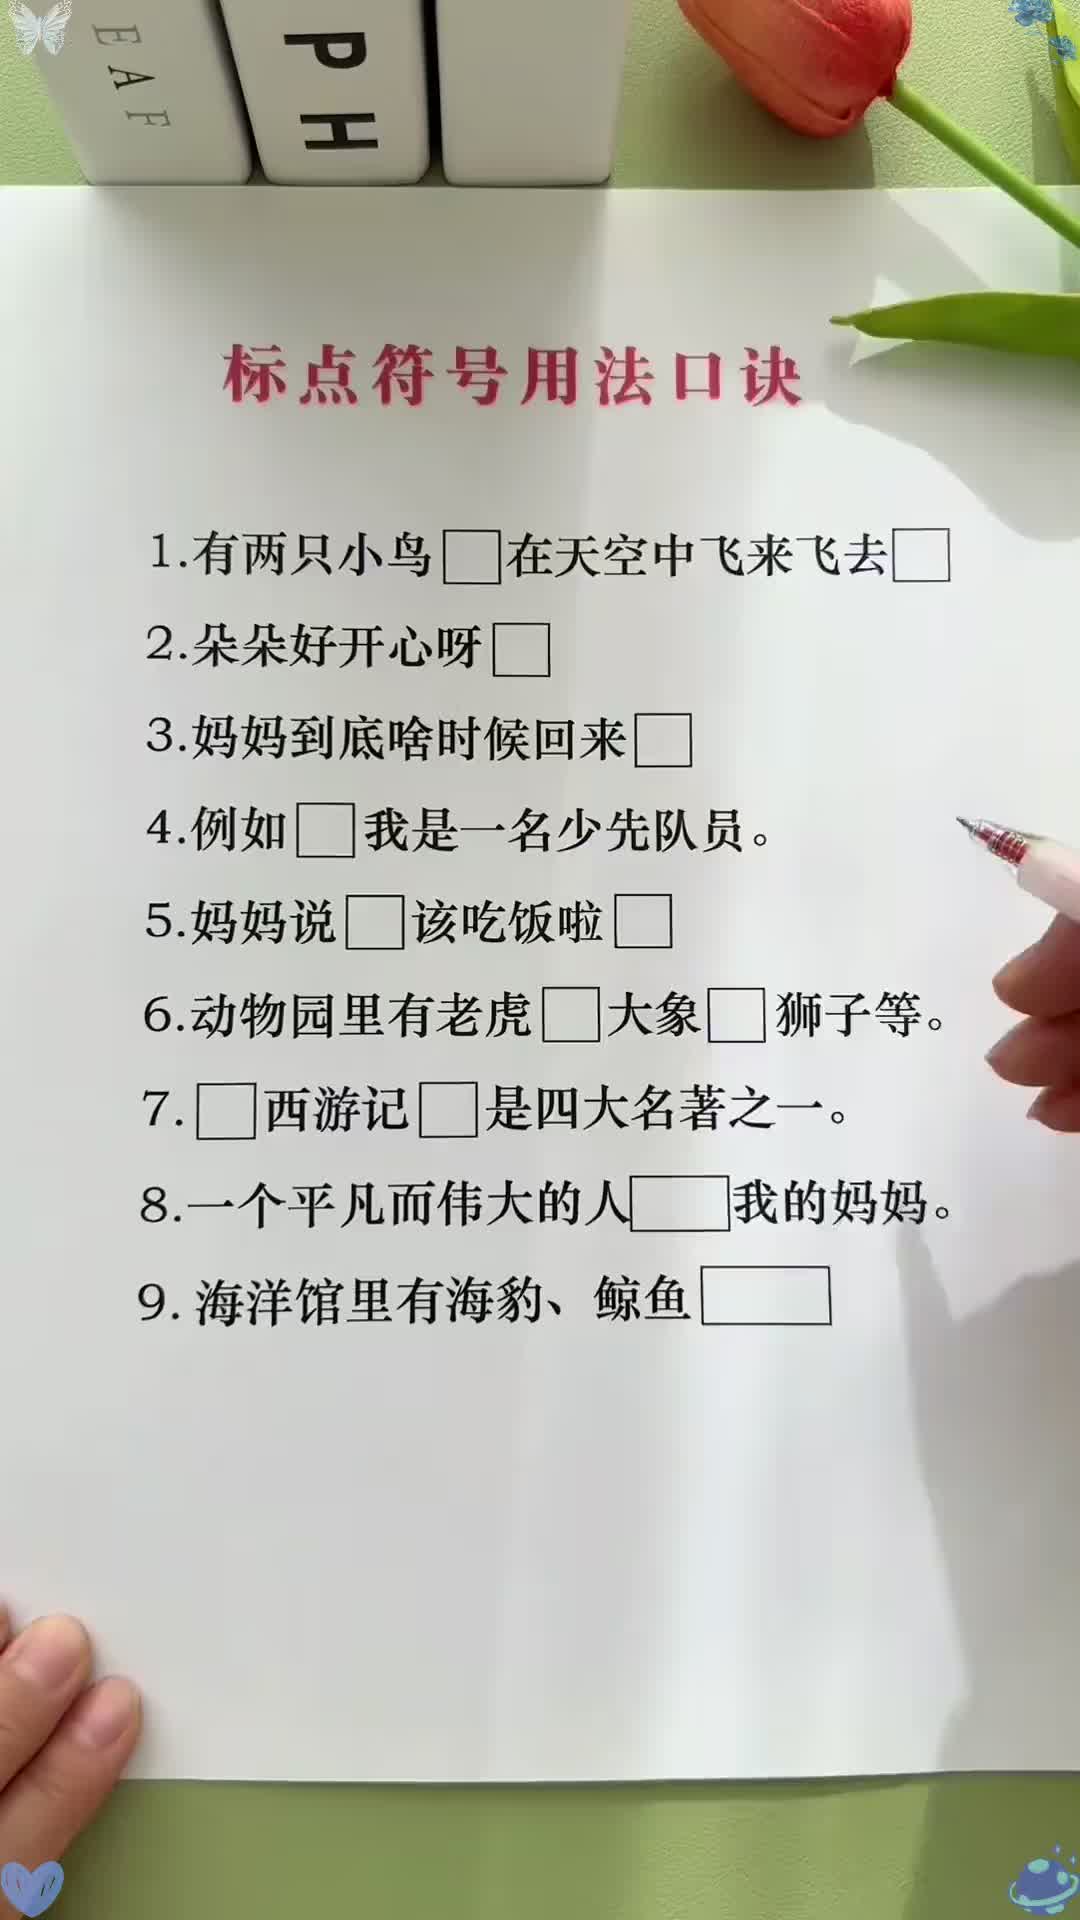 EAF
PH
标点符号用法口诀
1.有两只小鸟□在天空中飞来飞去□
2.朵朵好开心呀□
3.妈妈到底啥时候回来□
4.例如□我是一名少先队员。
5.妈妈说□该吃饭啦□
6.动物园里有老虎□大象□狮子等。
7.□西游记□是四大名著之一。
8.一个平凡而伟大的人□我的妈妈。
9.海洋馆里有海豹、鲸鱼□